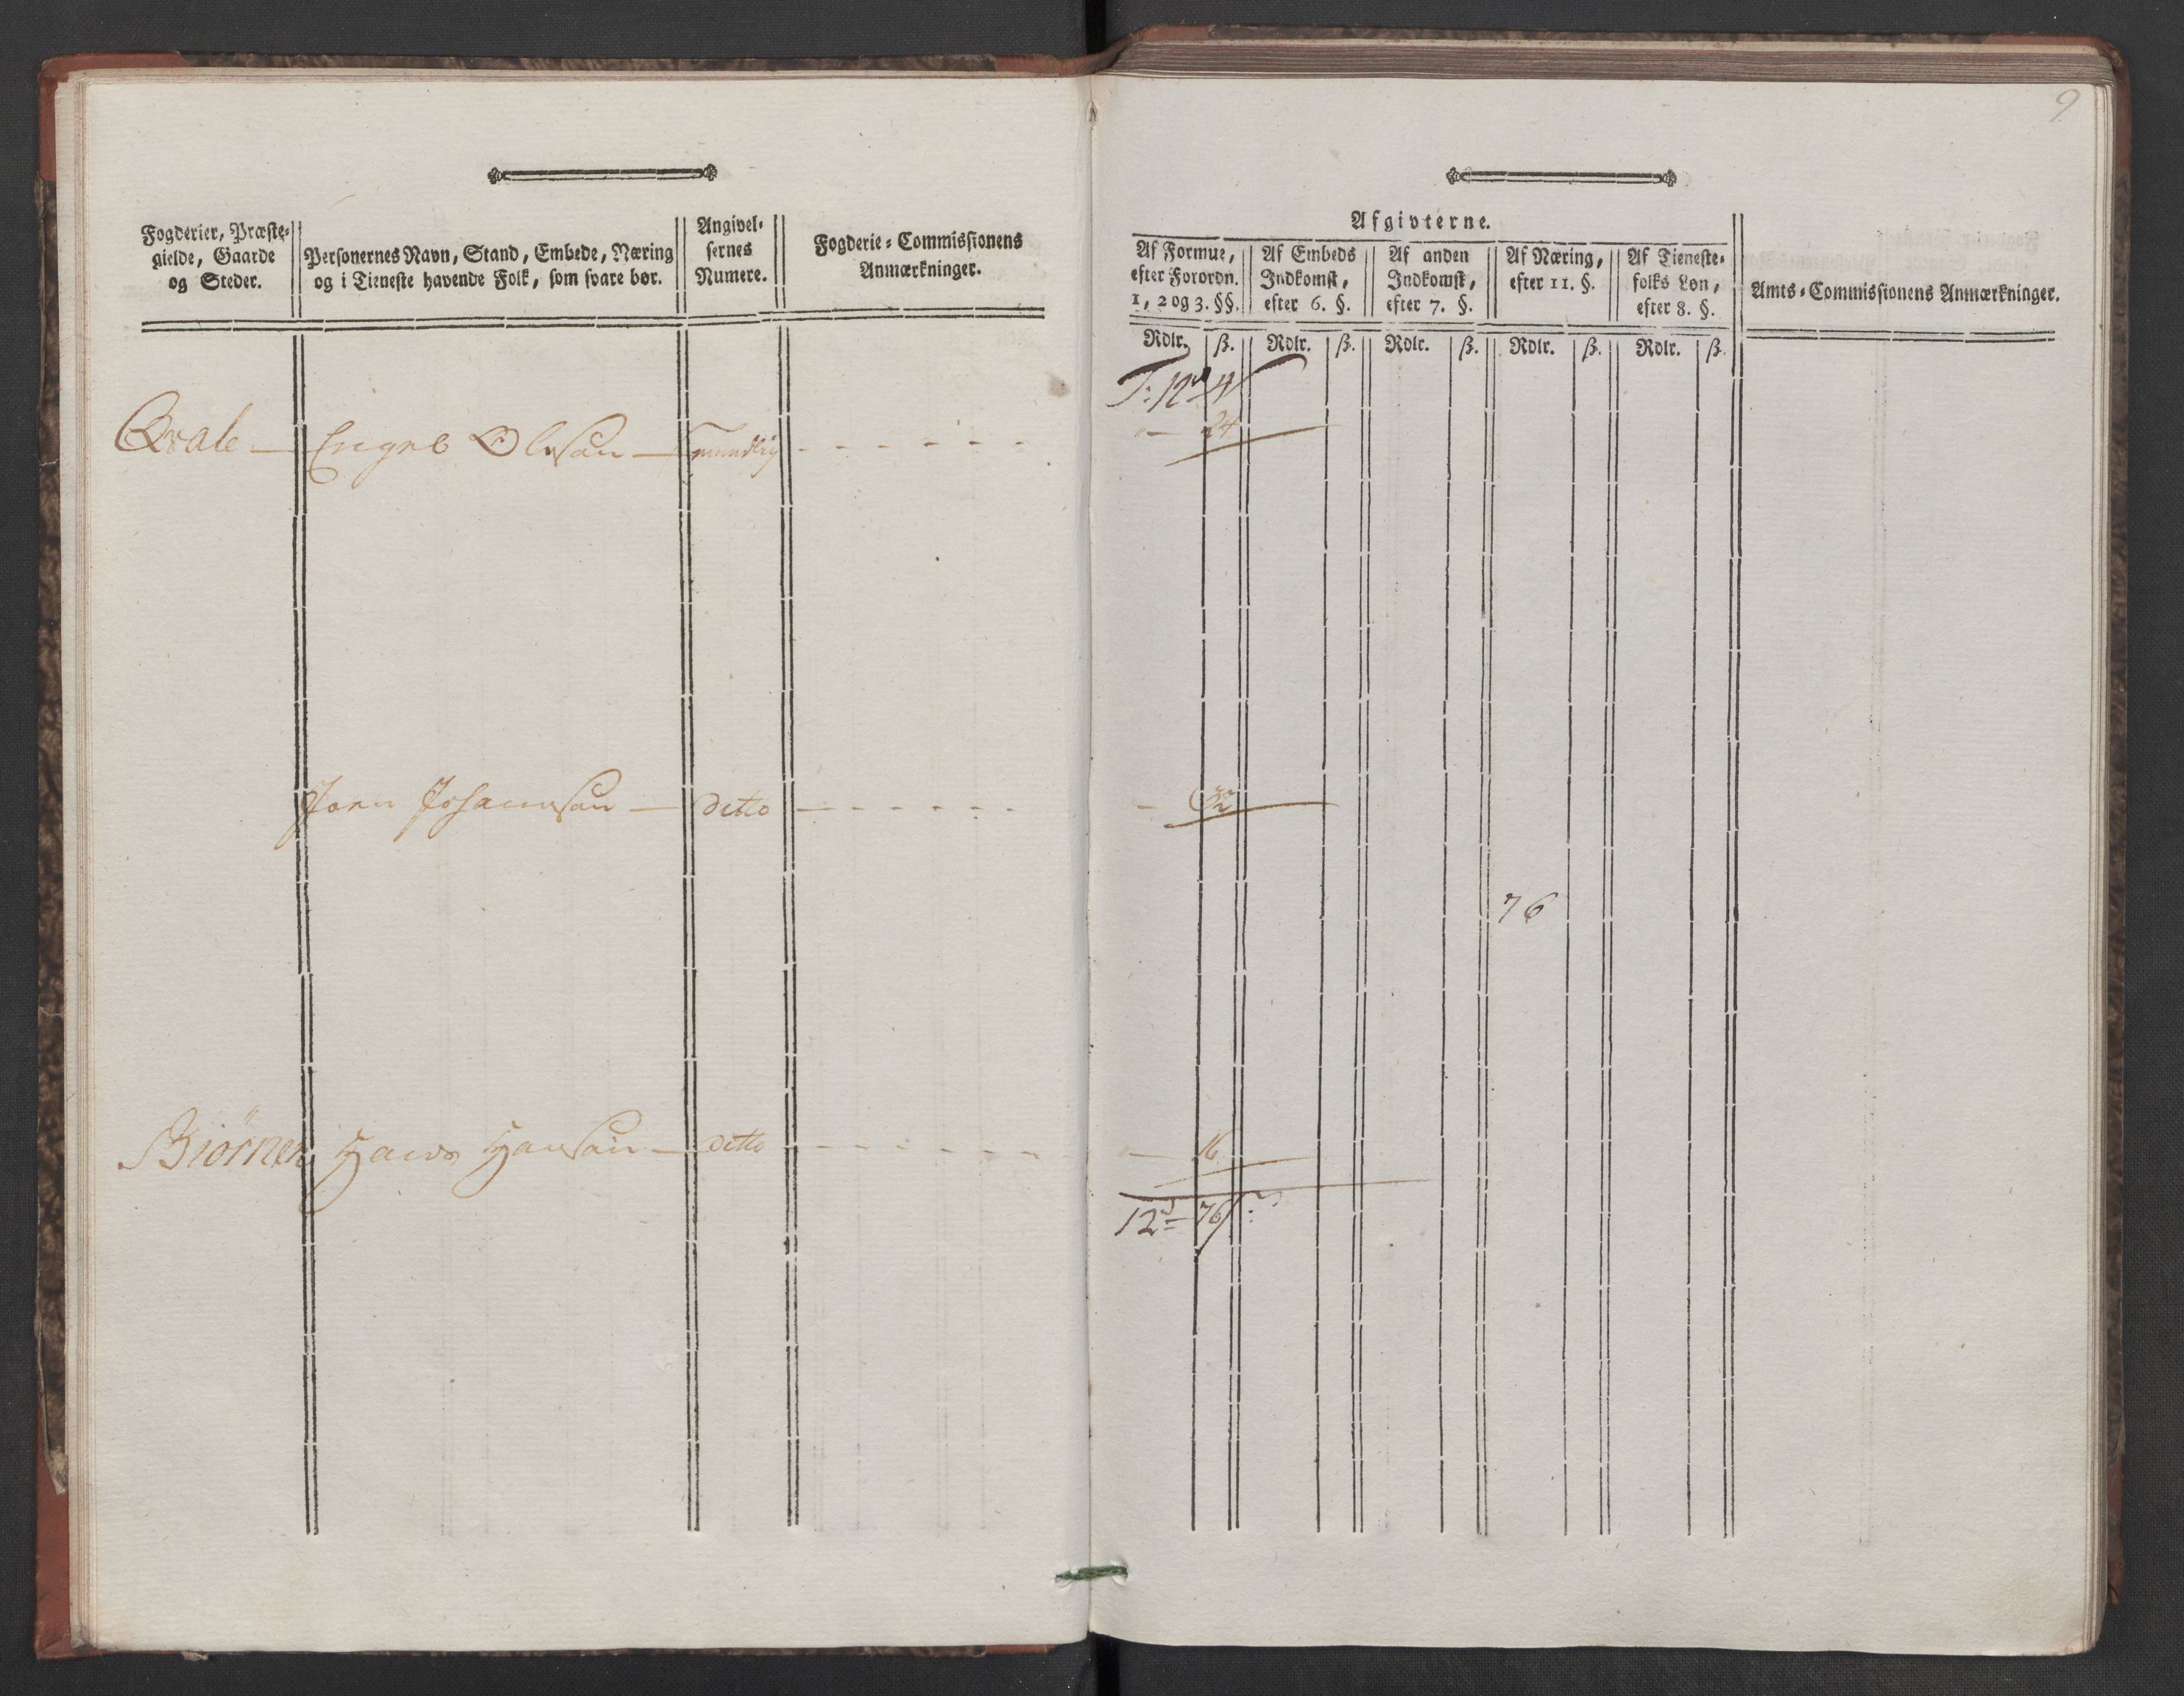 Fogderier, Præste-
gielde, Gaarde
og Steder.
Personernes Navn, Stand, Embede, Næring
og i Tieneste havende Folk, som svare bør.
Angivel-
sernes
Numere.
Fogderie-Commissionens
Anmærkninger.
Qvale — Engne Olsøn — mundtlig - - - - - -
Joen Johannsøn — ditto - - - - - -
Biörnen Hans Hansøn — ditto - - - - - -
9
Afgivterne.
Af Formue,
efter Forordn.
1, 2 og 3. §§.
Af Embeds
Indkomst,
efter 6. §.
Af anden
Indkomst,
efter 7. §.
Af Næring,
efter 11. §.
Af Tieneste-
folks Løn,
efter 8. §.
Amts-Commissionens Anmærkninger.
Rdlr. ß. Rdlr. ß. Rdlr. ß. Rdlr. ß. Rdlr. ß.
T: 12 4
" — 24
— 32
76
" — 16
12 — 76